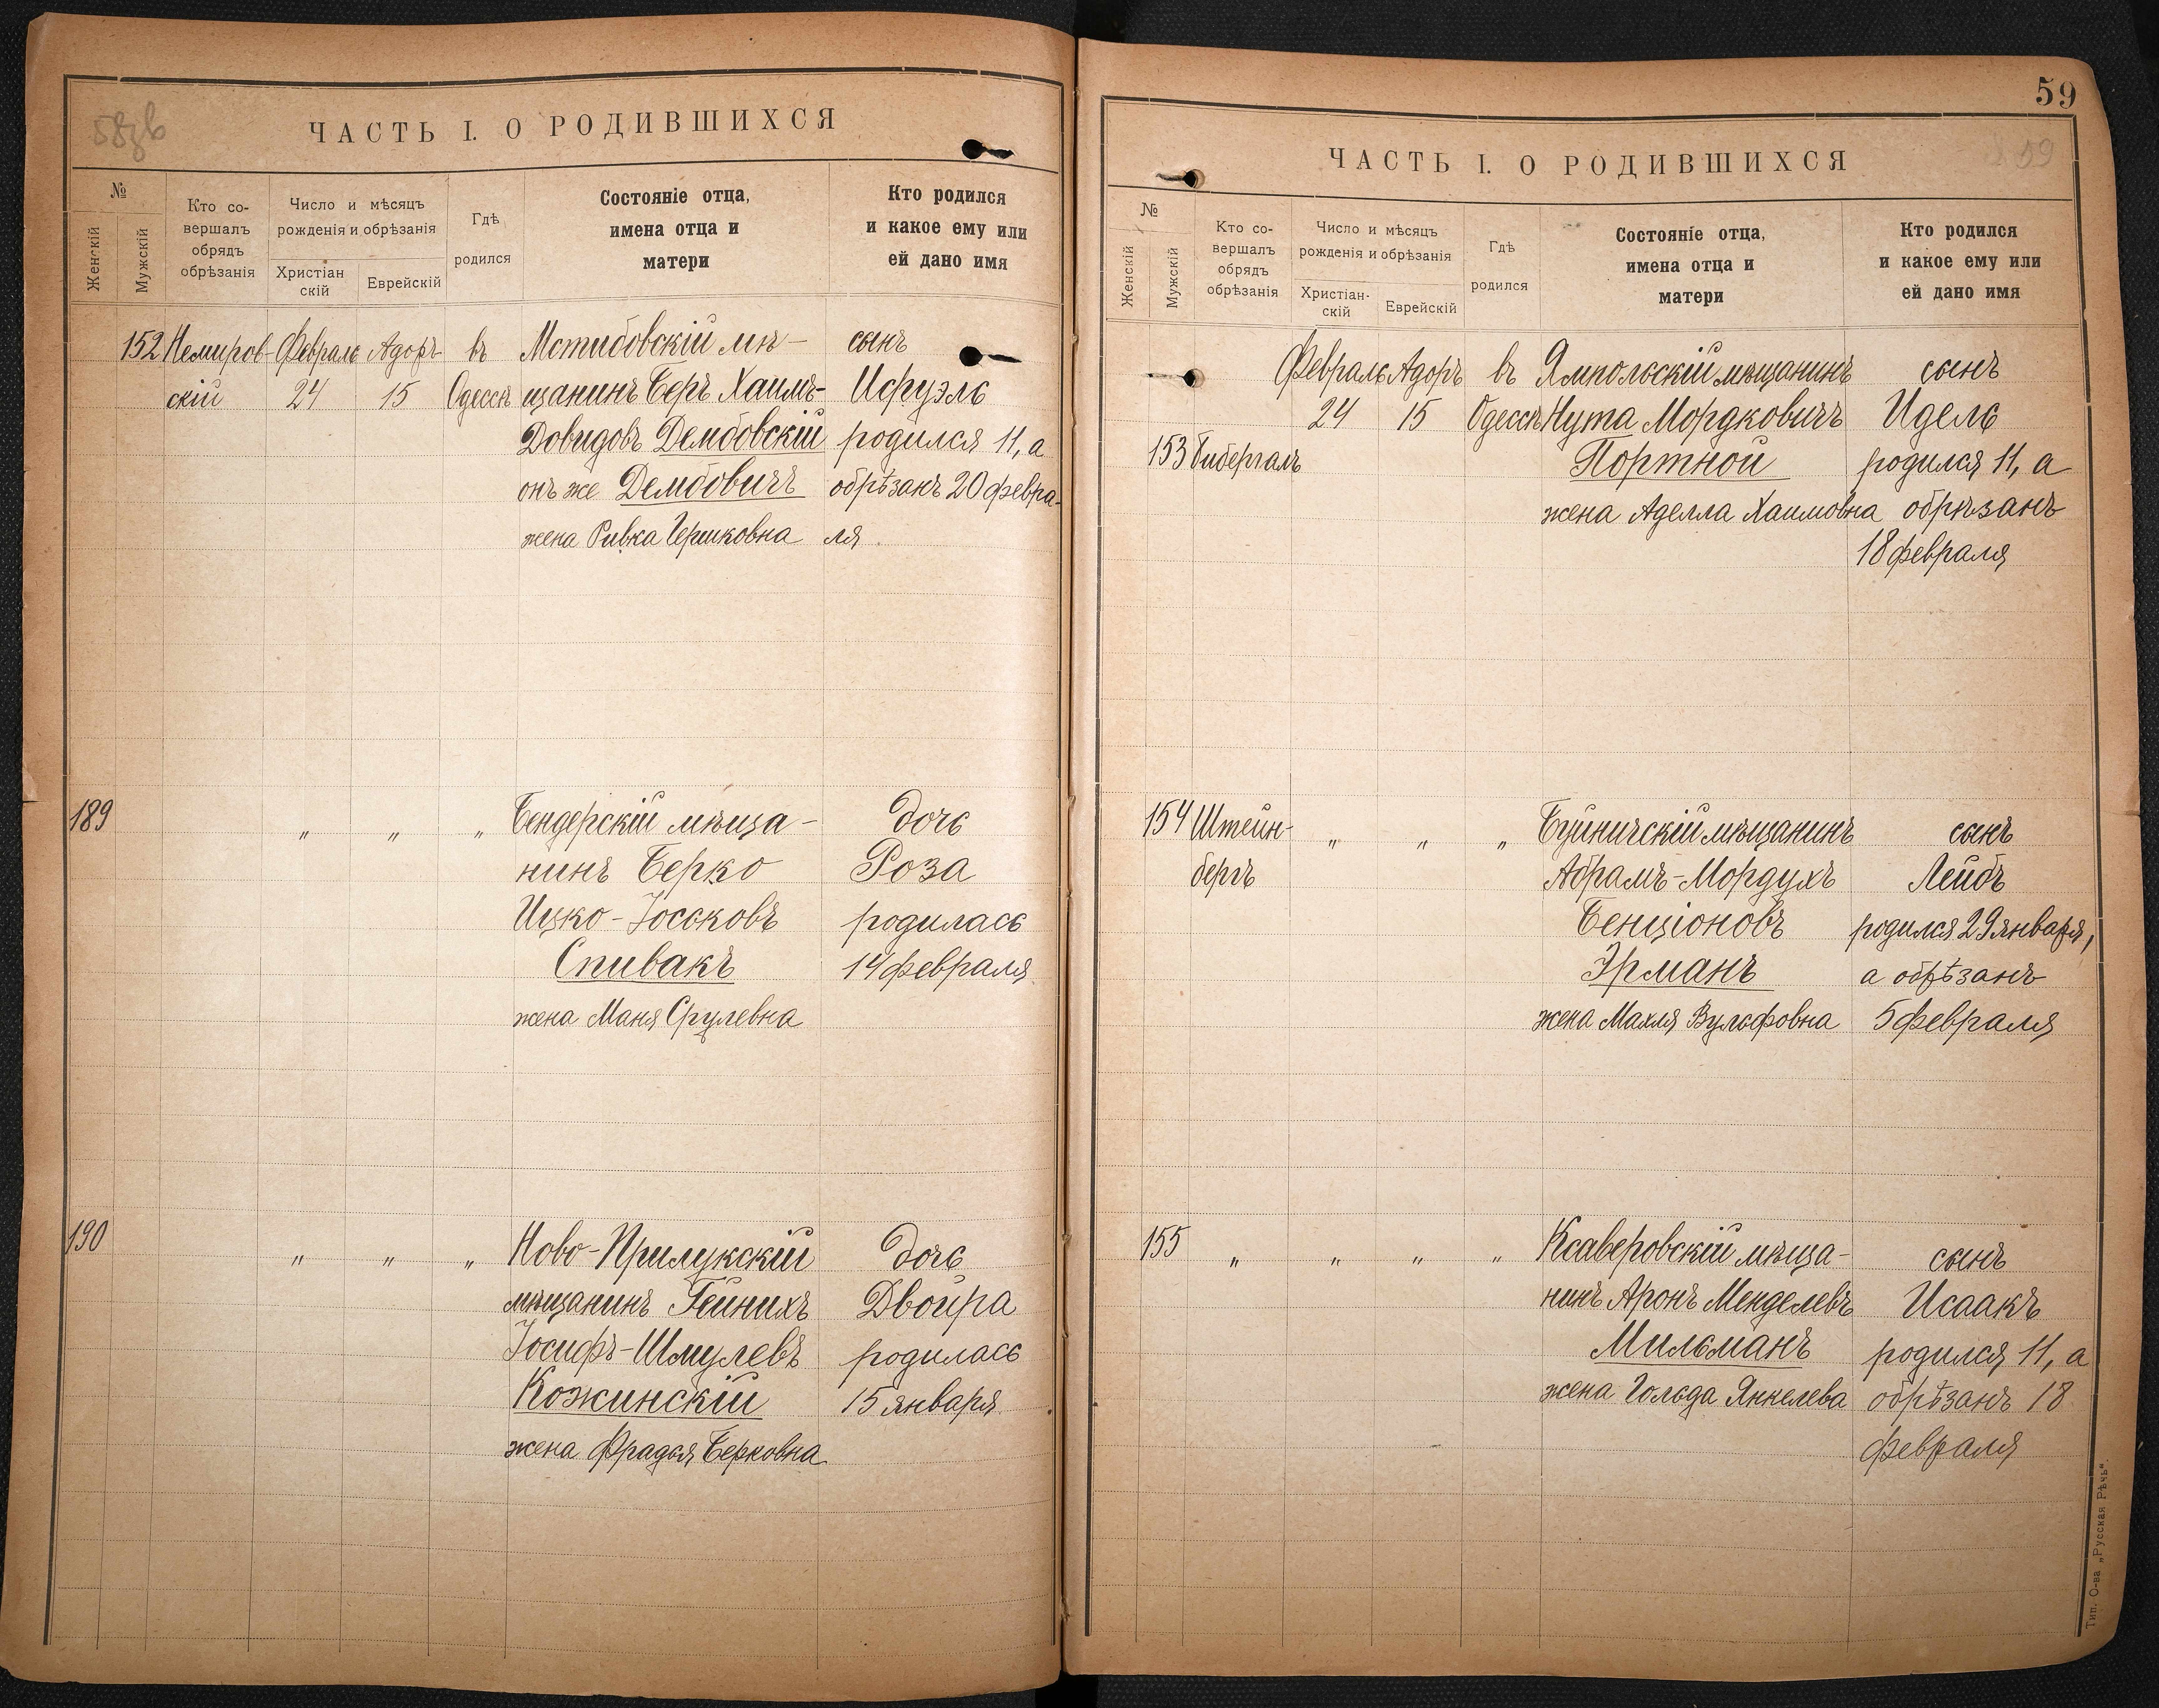 58зв
ЧАСТЬ I. О РОДИВШИХСЯ
№
Женскій
Мужскій
Кто со-
вершалъ
обрядъ
обрѣзанія
Число и мѣсяцъ
рожденія и обрѣзанія
Христіан
скій
Еврейскій
Гдѣ
родился
Состояніе отца,
имена отца и
матери
Кто родился
и какое ему или
ей дано имя
152 Немиров- Февраль Адоръ въ Мстибовскій мѣ- сынъ
скій 24 15 Одессѣ щанинъ Беръ Хаимъ- Исруэль
Довидовъ Дембовскій родился 11, а
онъ же Дембовичъ обрѣзанъ 20 февра-
жена Ривка Гершковна ля
189 „ „ „ Бендерскій мѣща- дочь
нинъ Берко Роза
Ицко-Іоськовъ родилась
Спивакъ 14 февраля
жена Маня Срулевна
190 „ „ „ Ново-Прилукскій дочь
мѣщанинъ Гейнихъ Двойра
Іосифъ-Шмулевъ родилась
Кожинскій 15 января
жена Фрадья Берковна
59
59
ЧАСТЬ I. О РОДИВШИХСЯ
№
Женскій
Мужскій
Кто со-
вершалъ
обрядъ
обрѣзанія
Число и мѣсяцъ
рожденія и обрѣзанія
Христіан-
скій
Еврейскій
Гдѣ
родился
Состояніе отца,
имена отца и
матери
Кто родился
и какое ему или
ей дано имя
Февраль Адоръ въ Ямпольскій мѣщанинъ сынъ
24 15 Одессѣ Нута Мордковичъ Идель
153 Гибергаль Портной родился 11, а
жена Аделла Хаимовна обрѣзанъ
18 февраля
154 Штейн- „ „ „ Буйничскій мѣщанинъ сынъ
бергъ Абрамъ-Мордухъ Лейбъ
Бенціоновъ родился 29 января,
Эрманъ а обрѣзанъ
жена Махля Вульфовна 5 февраля
155 „ „ „ „ Ксаверовскій мѣща- сынъ
нинъ Аронъ Менделевъ Исаакъ
Мильманъ родился 11, а
жена Гольда Янкелева обрѣзанъ 18
февраля
Тип. О-ва „Русская Рѣчь".